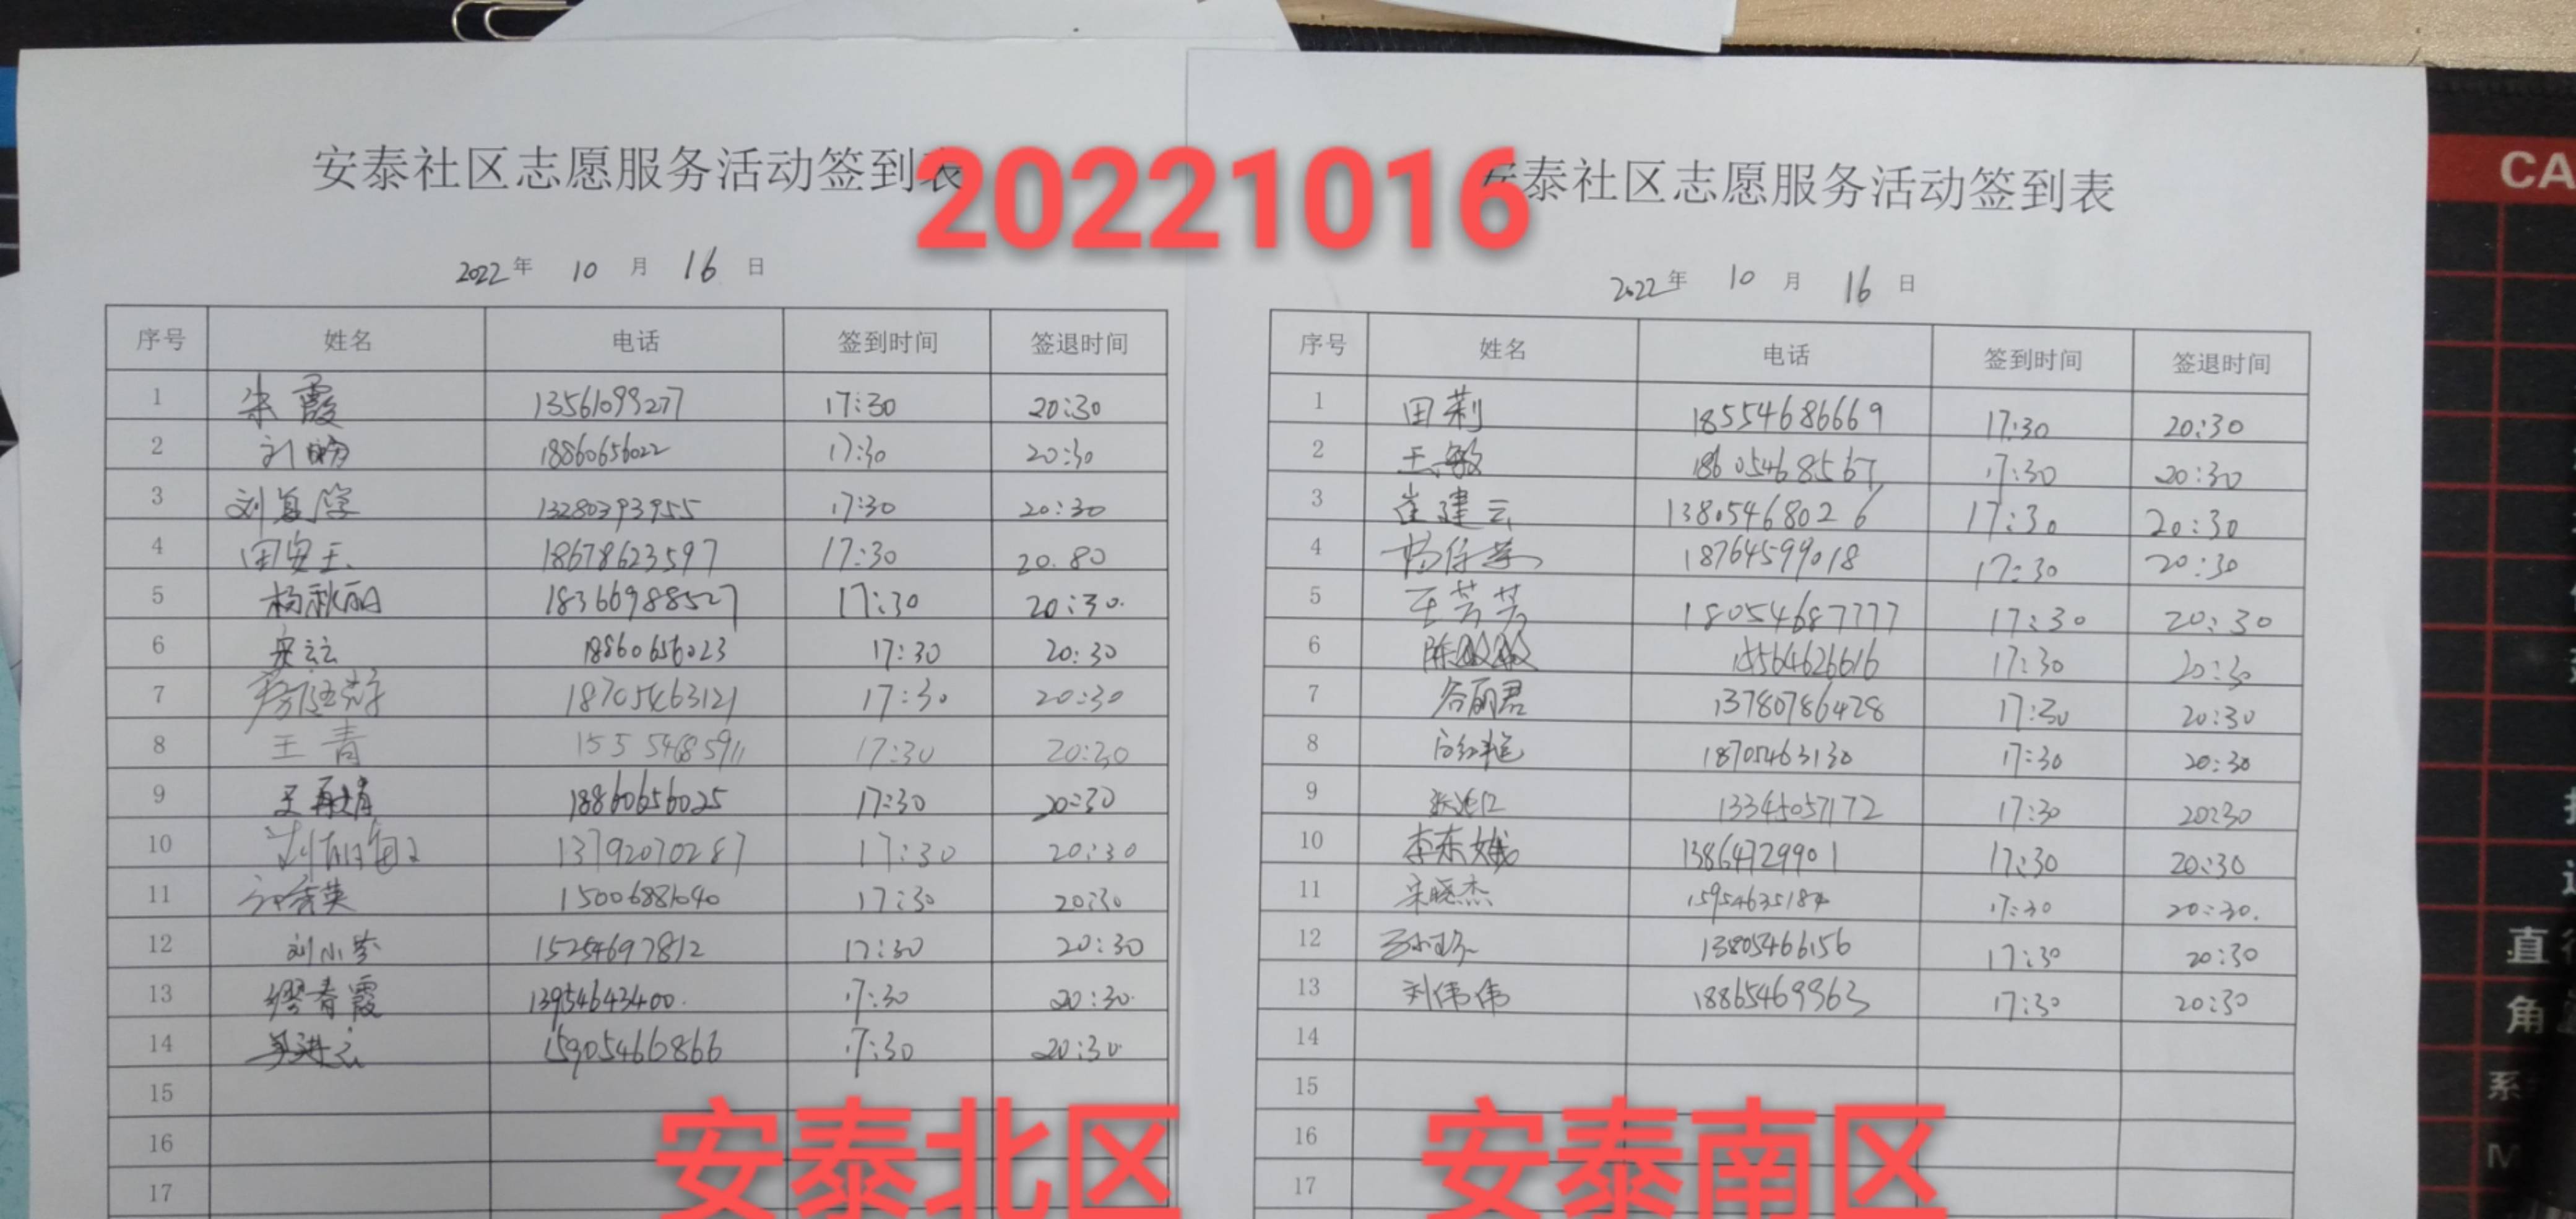 20221016
安泰社区志愿服务活动签到表
2022年 10 月 16 日
序号 姓名 电话 签到时间 签退时间
1 朱霞 13561099277 17:30 20:30
2 刘 18860656022 17:30 20:30
3 刘 13280393955 17:30 20:30
4 田安玉 18678623597 17:30 20.80
5 杨秋丽 18366988527 17:30 20:30.
6 18860656023 17:30 20:30
7 18705463121 17:30 20:30
8 王青 15554685911 17:30 20:30
9 王再娟 18860656025 17:30 20:30
10 13792070287 17:30 20:30
11 15006881040 17:30 20:30
12 刘小芬 15254697812 17:30 20:30
13 缪春霞 13954643400. 17:30 20:30.
14 15905466866 17:30 20:30
15
16
17
安泰北区
安泰社区志愿服务活动签到表
2022年 10 月 16 日
序号 姓名 电话 签到时间 签退时间
1 田莉 18554686669 17:30 20:30
2 王敏 18605468567 17:30 20:30
3 崔建云 13805468026 17:30 20:30
4 18764599018 17:30 20:30
5 王芸芳 18054687777 17:30 20:30
6 陈 15564626616 17:30 20:30
7 谷丽君 13780786428 17:30 20:30
8 18705463130 17:30 20:30
9 13345057172 17:30 20:30
10 李东娥 13864729901 17:30 20:30
11 宋晓杰 17:30 20:30.
12 13805466156 17:30 20:30
13 刘伟伟 18865469963 17:30 20:30
14
15
16
17
安泰南区
CA
直
角
系
M